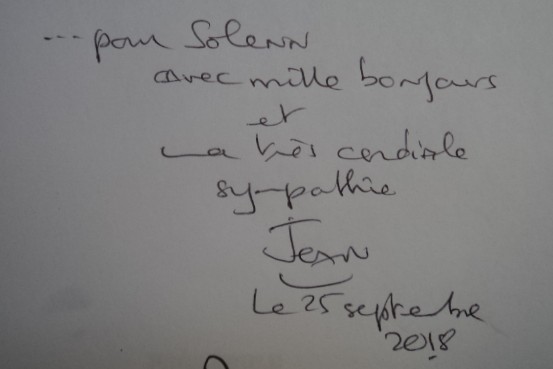 ... pour Solenn
avec mille bonjours
et
ma très cordiale
sympathie
Jean
Le 25 septembre
2018